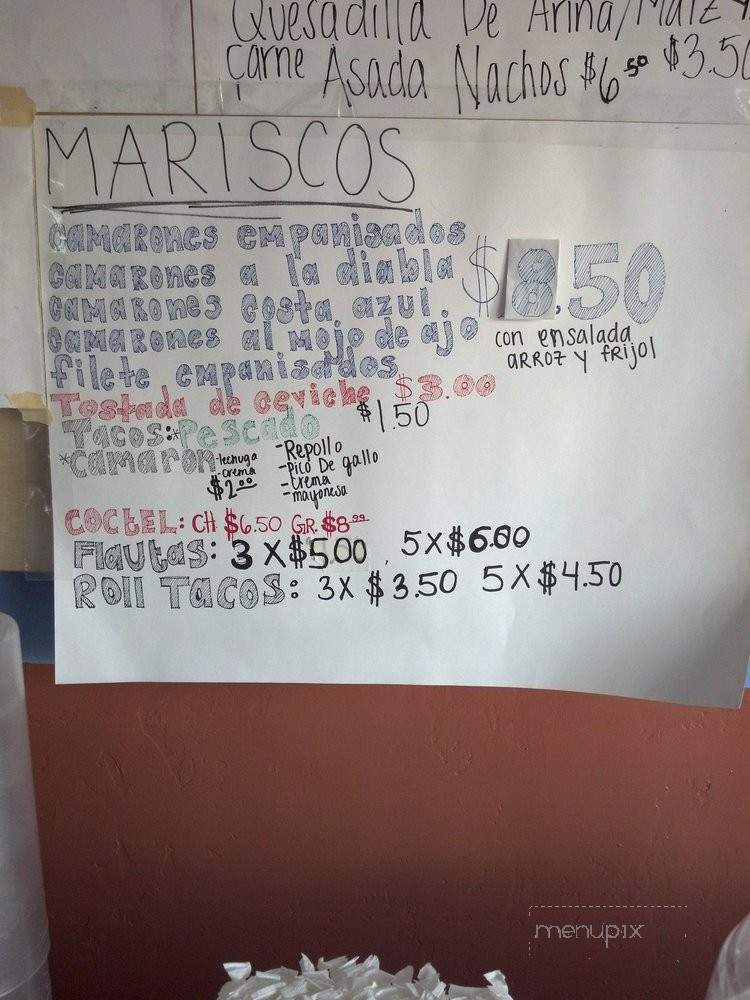 Quesadilla De Arina/Maiz y
Carne Asada Nachos $6.50 $3.50
MARISCOS
camarones empanisados
camarones a la diabla
camarones costa azul
camarones al mojo de ajo
filete empanisados
$8.50
con ensalada
arroz y frijol
Tostada de ceviche $3.00
Tacos: *Pescado $1.50
*Camaron
-lechuga
-crema
$2.00
-Repollo
-Pico De gallo
-Crema
-mayonesa
COCTEL: CH $6.50 GR. $8.99
Flautas: 3 X $5.00, 5 X $6.00
ROLL TACOS: 3X $3.50 5 X $4.50
menupix